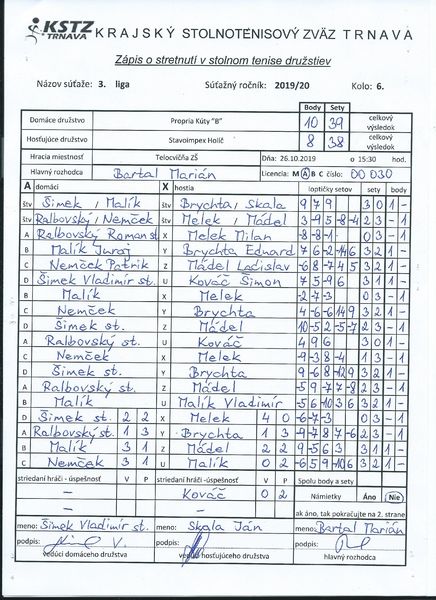 KSTZ TRNAVA KRAJSKÝ STOLNOTENISOVÝ ZVÄZ TRNAVA
Zápis o stretnutí v stolnom tenise družstiev
Názov súťaže: 3. liga Súťažný ročník: 2019/20 Kolo: 6.
Body Sety
Domáce družstvo Propria Kúty "B" 10 39 celkový výsledok
Hosťujúce družstvo Stavoimpex Holíč 8 38 celkový výsledok
Hracia miestnosť Telocvičňa ZŠ Dňa: 26.10.2019 o 15:30 hod.
Hlavný rozhodca Bartal Marián Licencia: M A B C číslo: 00 030
A domáci X hostia loptičky setov sety body
štv Šimek / Malík štv Brychta / Skala 9 7 9 3 0 1 -
štv Ralbovský / Nemček štv Melek / Mádel -3 -9 5 -8 -4 2 3 - 1
A Ralbovský Roman st. X Melek Milan -8 -8 -1 0 3 - 1
B Malík Juraj Y Brychta Eduard 7 6 -2 -14 6 3 2 1 -
C Nemček Patrik Z Mádel Ladislav -6 8 -7 4 5 3 2 1 -
D Šimek Vladimír st. U Kováč Šimon 7 5 -9 6 3 1 1 -
B Malík X Melek -2 -7 -3 0 3 - 1
C Nemček Y Brychta 4 -6 -6 14 9 3 2 1 -
D Šimek st. Z Mádel 10 -5 2 -5 -7 2 3 - 1
A Ralbovský st. U Kováč 4 9 6 3 0 1 -
C Nemček X Melek -9 -3 8 -4 1 3 - 1
D Šimek st. Y Brychta 9 -6 8 -12 9 3 2 1 -
A Ralbovský st. Z Mádel -5 9 -7 7 -8 2 3 - 1
B Malík U Malík Vladimír -5 6 10 3 6 3 2 1 -
D Šimek st. 2 2 X Melek 4 0 -6 -7 -3 0 3 - 1
A Ralbovský st. 1 3 Y Brychta 1 3 -9 7 8 7 -6 2 3 - 1
B Malík 3 1 Z Mádel 2 2 9 -5 6 3 3 1 1 -
C Nemček 3 1 U Malík 0 2 -6 5 9 -10 6 3 2 1 -
striedaní hráči - úspešnosť V P striedaní hráči - úspešnosť V P Spolu body a sety
- - - Kováč 0 2 Námietky Áno Nie
- - - - - - ak áno, tak pokračujte na 2. strane
meno: Šimek Vladimír st. meno: Skala Ján meno: Bartal Marián
podpis: podpis: podpis:
vedúci domáceho družstva vedúci hosťujúceho družstva hlavný rozhodca